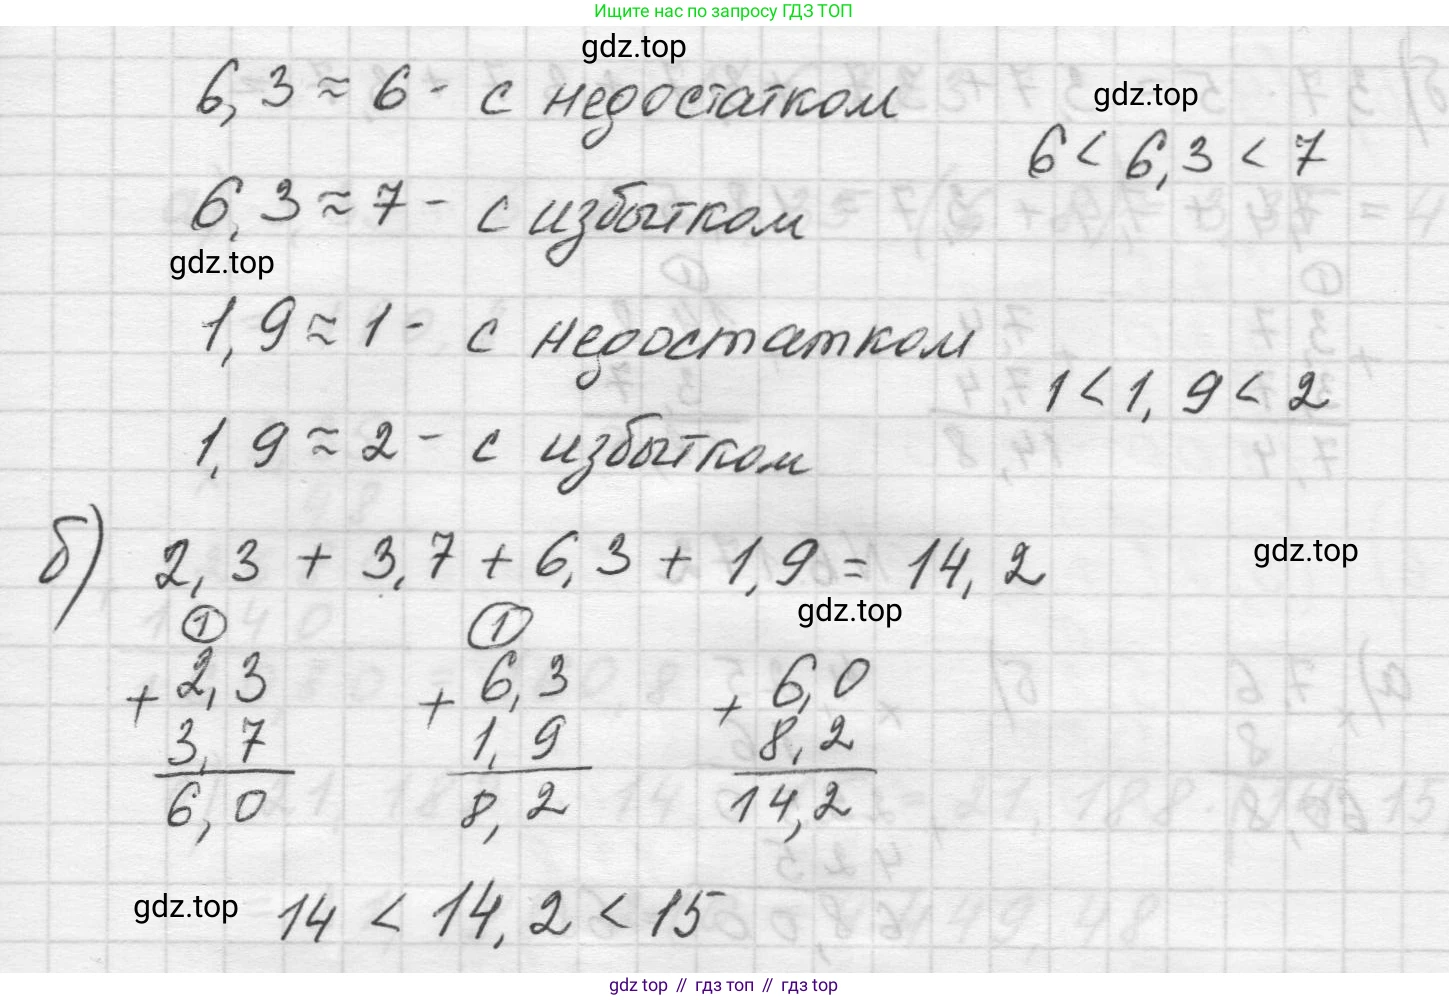 Ищите нас по запросу ГДЗ ТОП
gdz.top
6,3 ≈ 6 - с недостатком
gdz.top
6 < 6,3 < 7
6,3 ≈ 7 - с избытком
gdz.top
1,9 ≈ 1 - с недостатком
1 < 1,9 < 2
1,9 ≈ 2 - с избытком
б) 2,3 + 3,7 + 6,3 + 1,9 = 14,2
gdz.top
gdz.top
1 1
+ 2,3 + 6,3 + 6,0
3,7 1,9 8,2
6,0 8,2 14,2
gdz.top
14 < 14,2 < 15
gdz top // гдз топ // gdz top